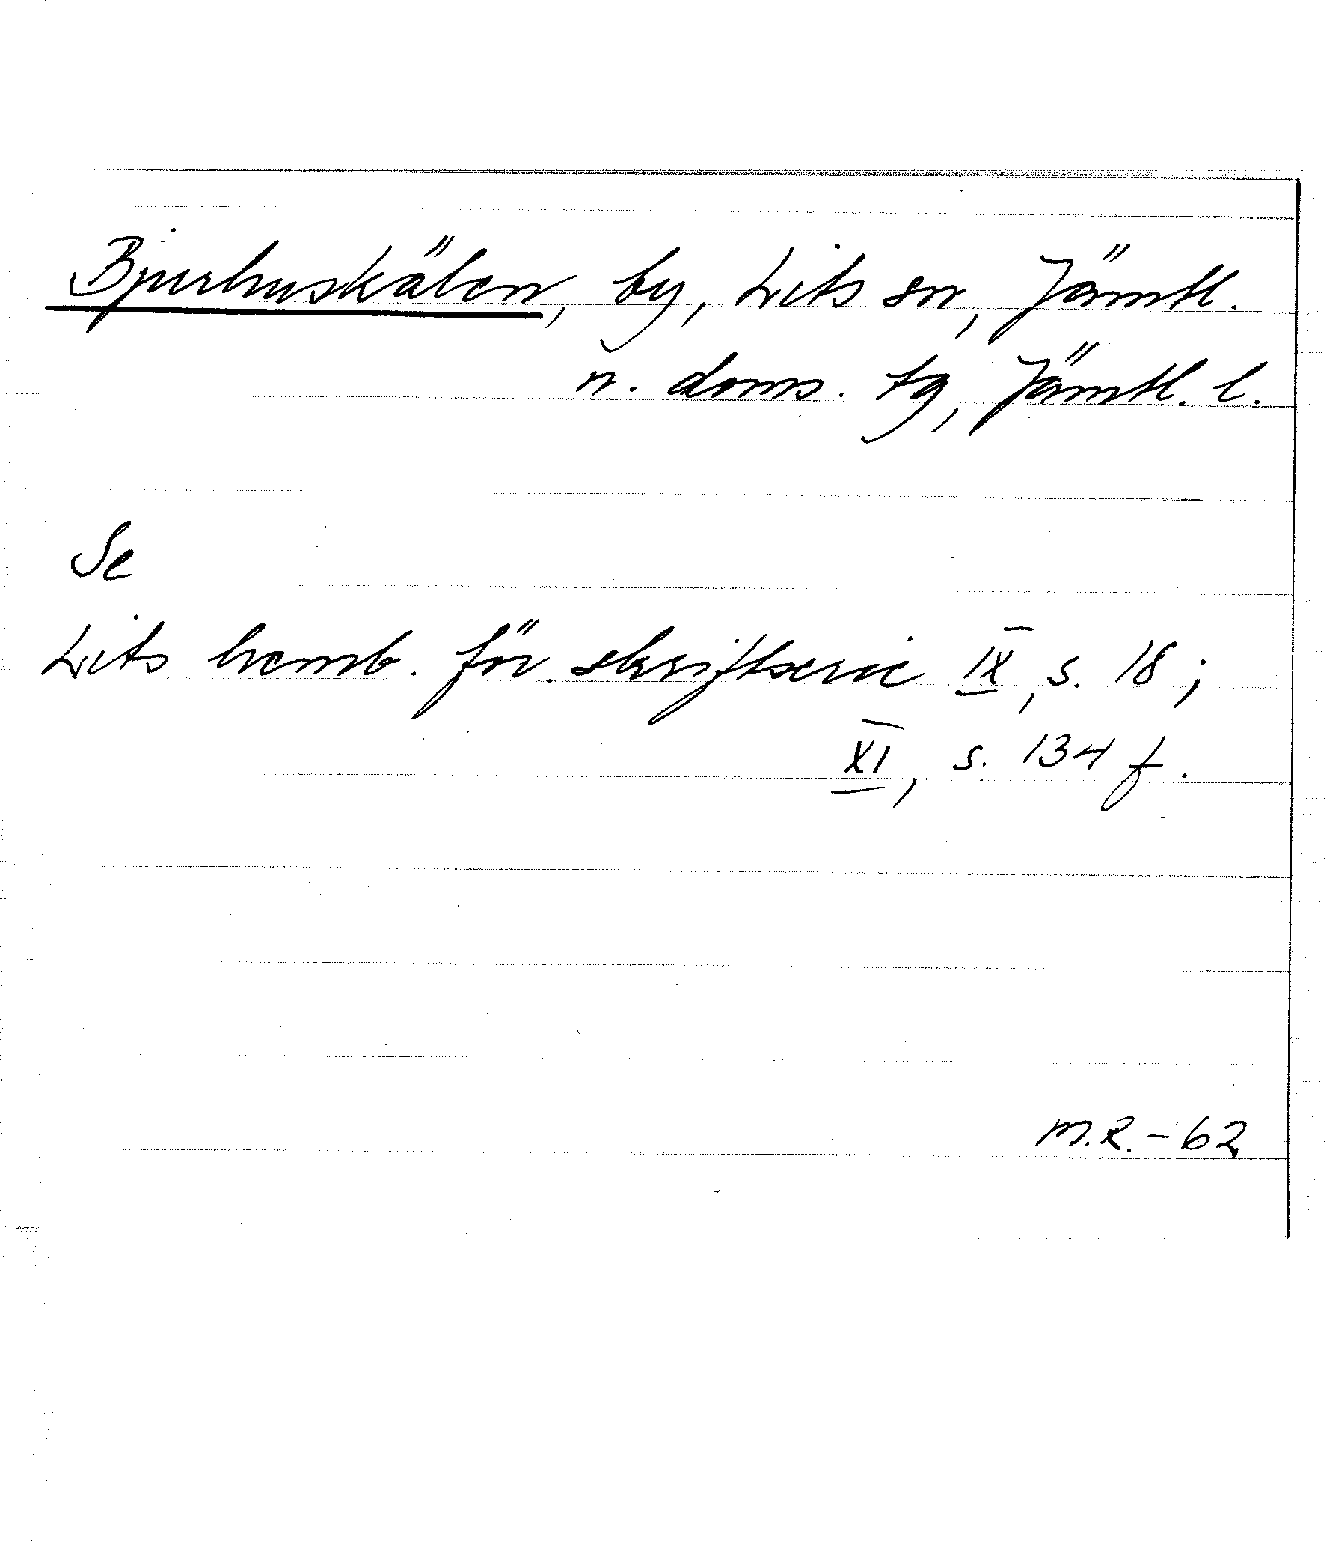 Bjurhuskälen, by, Lits sn, Jämtl.
n. doms. tg, Jämtl. l.
Se
Lits hemb. för. skriftserie IX, s. 18;
XI, s. 134 f.
M.R. - 62